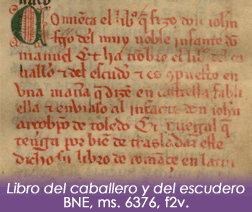 Comieça el lib.º q̃ fizo don iohn
fijo del muy noble infante don
manuel Et ha nonbre el lib.º del ca
uallº τ del escudº τ es cõpuesto en
una manª q̃ dizen en castiella fabli
ella τ enbialo al infante don iohn
arçobpo de toledo Et ruegal q̃
tenga por biẽ de trasladar este
dicho su libro de romance en latin
Libro del caballero y del escudero
BNE, ms. 6376, f2v.